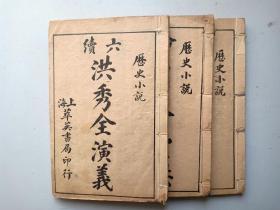 歷史小說
六續
洪秀全演義
上海萃英書局印行
歷史小說
歷史小說